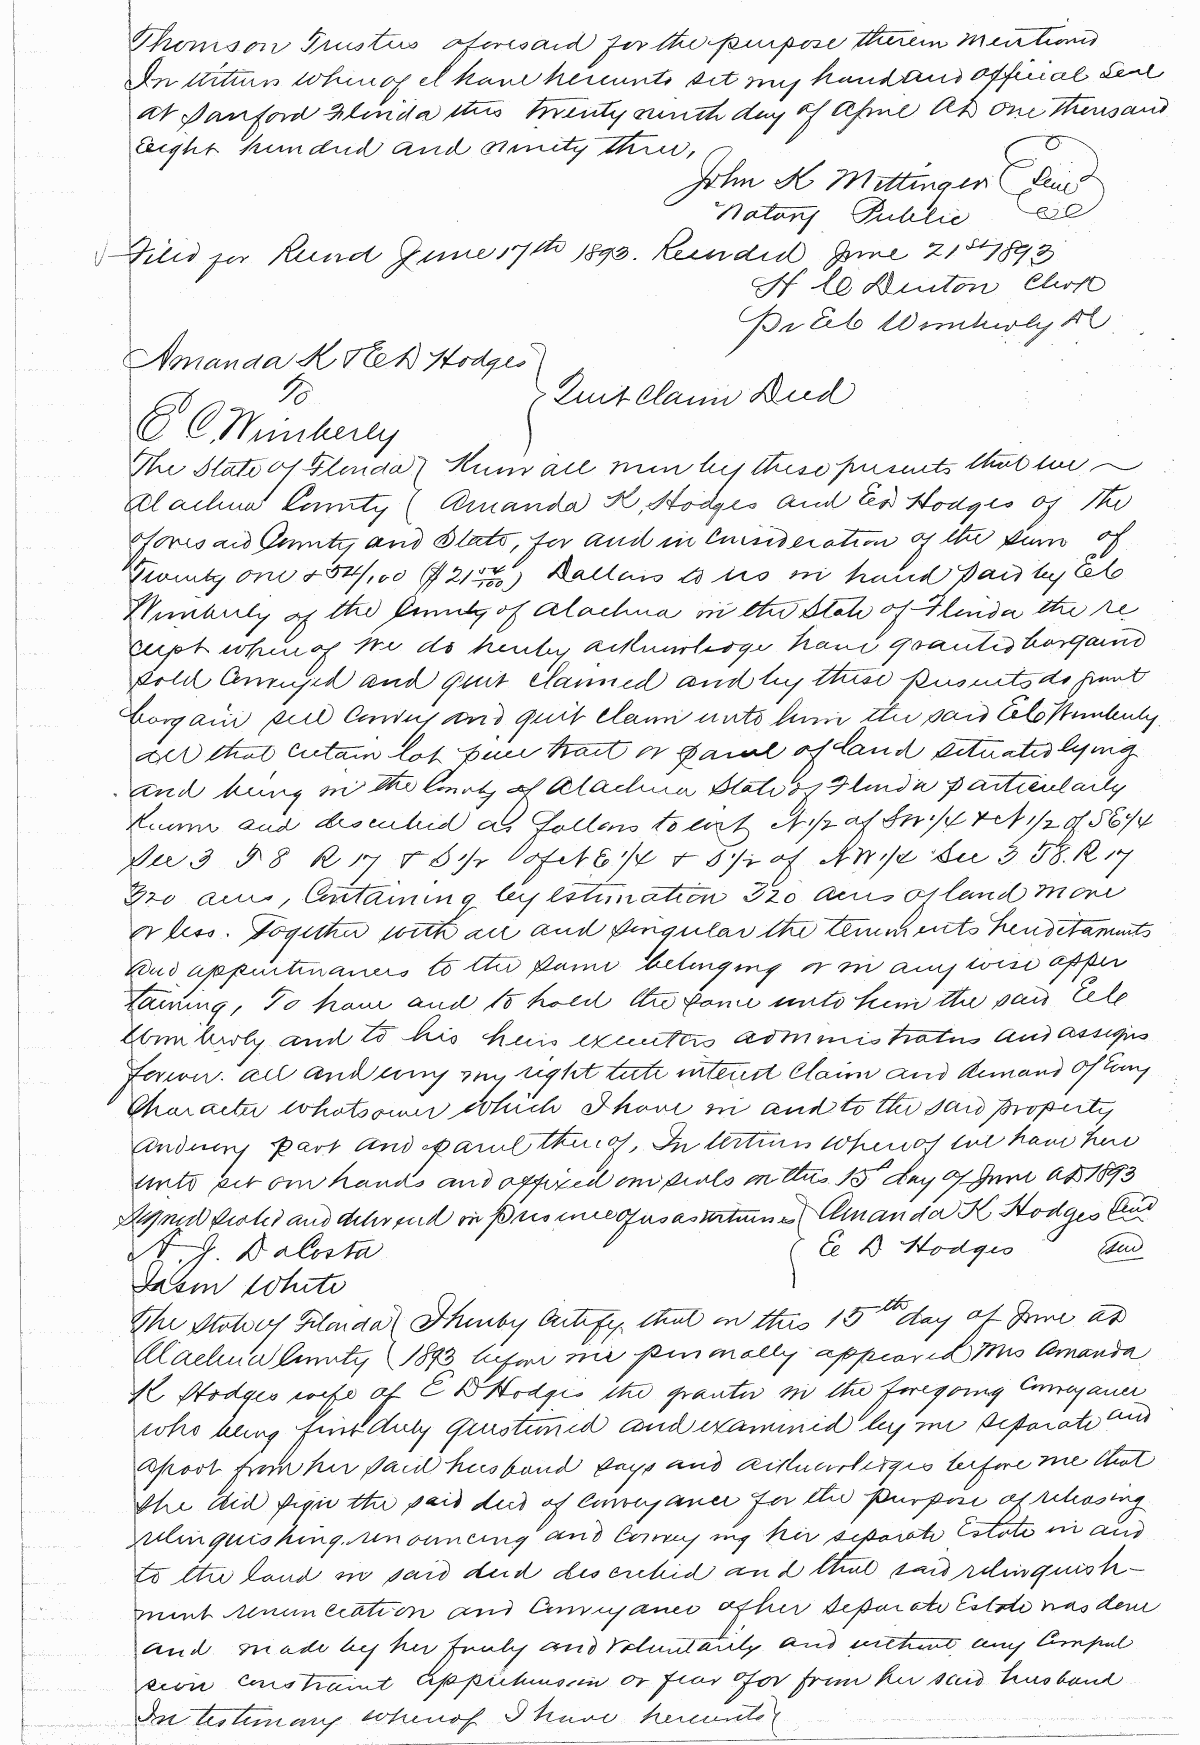 Thomson Trustees aforesaid for the purpose therein mentioned
In witness whereof I have hereunto set my hand and official seal
at Sanford Florida this twenty ninth day of April AD one thousand
Eight hundred and ninety three,
John K Mettinger Seal
Notary Public
Filed for Record June 17th 1893. Recorded June 21st 1893
H C Denton Clerk
Pr E C Wimberly DC
Amanda K & E D Hodges
To
Quit Claim Deed
E C. Wimberly
The State of Florida Know all men by these presents that we
Alachua County Amanda K, Hodges and E D Hodges of the
aforesaid County and State, for and in consideration of the sum of
Twenty one & 54/100 ($21 54/100) Dollars to us in hand paid by E C
Wimberly of the County of Alachua in the State of Florida the re
ceipt whereof we do hereby acknowledge have granted bargaind
sold Conveyed and quit claimed and by these presents do grant
bargain sell Convey and quit claim unto him the said E C Wimberly
all that certain lot piece tract or parcel of land situated lying
and being in the County of Alachua State of Florida particularly
known and described as follows to wit N 1/2 of SW 1/4 & N 1/2 of SE 1/4
Sec 3 T 8 R 17 & S 1/2 of NE 1/4 & S 1/2 of NW 1/4 Sec 3 T 8. R 17
320 acres, Containing by estimation 320 acres of land more
or less. Together with all and singular the tenements hereditaments
and appurtenances to the same belonging or in any wise apper
taining, To have and to hold the same unto him the said E C
Wimberly and to his heirs executors administrators and assigns
forever. all and every my right title interest Claim and demand of Every
Character whatsoever which I have in and to the said property
and every part and parcel thereof, In witness whereof we have here
unto set our hands and affixed our seals on this 15th day of June AD 1893
Signed sealed and deliverd in presence of us as witnesses Amanda K Hodges Seal
A. J. DaCosta E D Hodges Seal
Jason White
The State of Florida I hereby Certify that on this 15th day of June AD
Alachua County 1893 before me personally appeared Mrs Amanda
K Hodges wife of E D Hodges the grantor in the foregoing Conveyance
who being first duly questioned and examined by me separate and
apart from her said husband says and acknowledges before me that
she did sign the said deed of conveyance for the purpose of releasing
relinquishing. renouncing and conveying her separate Estate in and
to the land in said deed described and that said relinquish-
ment renunciation and Conveyance of her separate Estate was done
and made by her freely and voluntarily and without any Compul
sion constraint apprehension or fear of or from her said husband
In testimony whereof I have hereunto